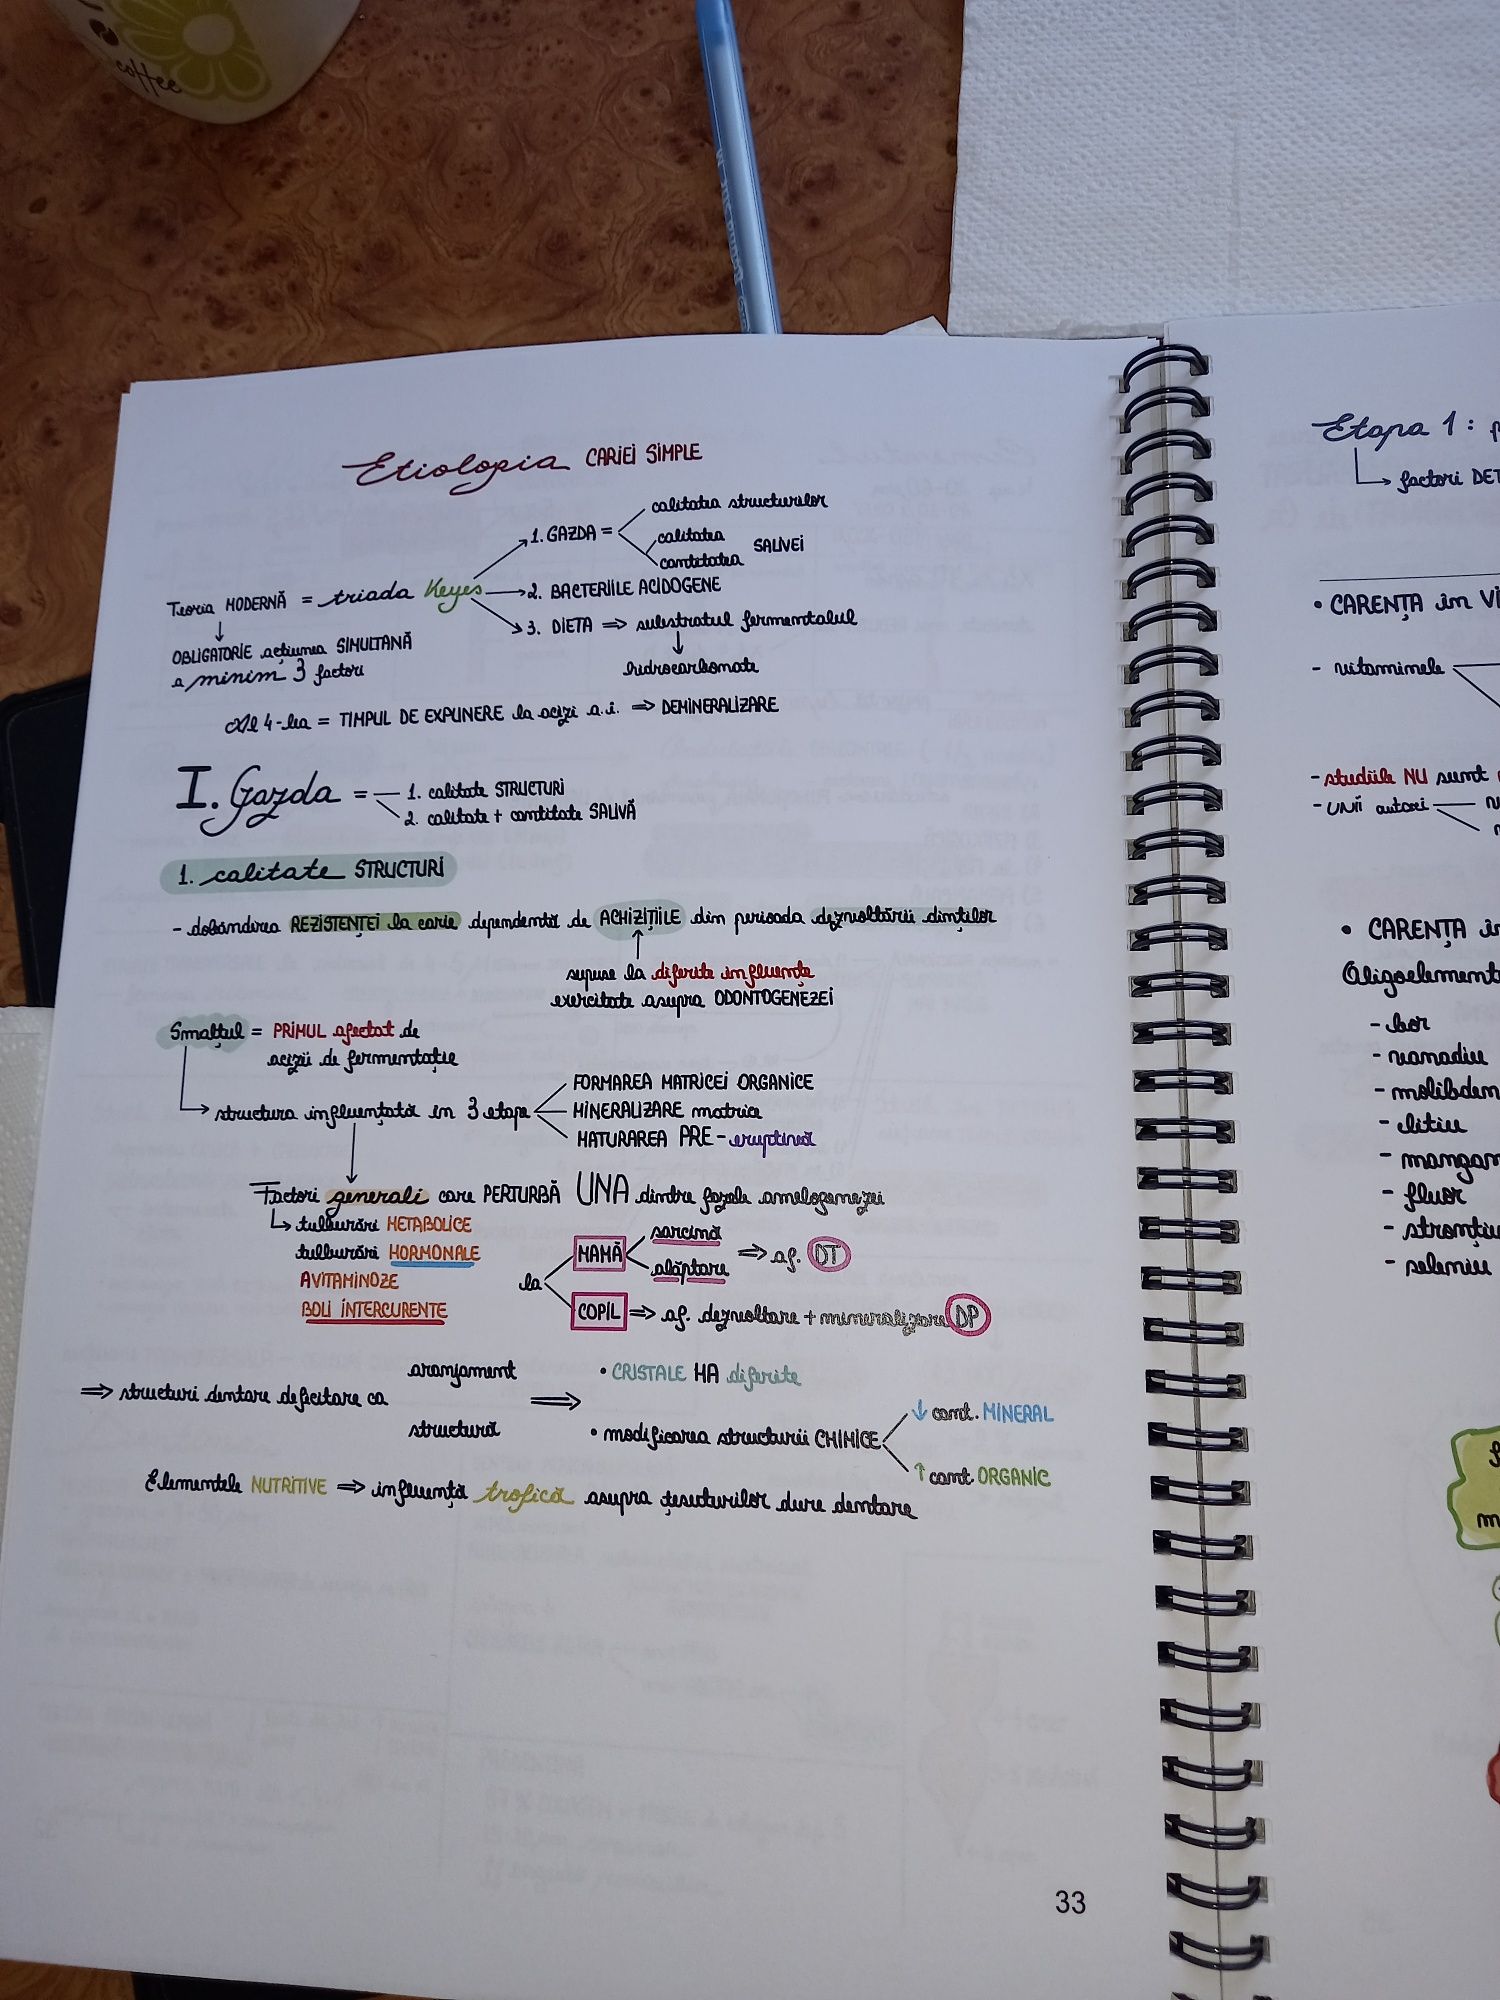 coffee
Etiologia CARIEI SIMPLE
Teoria MODERNĂ = triada Keyes
OBLIGATORIE acțiunea SIMULTANĂ
a minim 3 factori
1. GAZDA =
calitatea structurilor
calitatea
cantitatea SALIVEI
2. BACTERIILE ACIDOGENE
3. DIETA ⇒ substratul fermentabil
hidrocarbonate
Al 4-lea = TIMPUL DE EXPUNERE la acizi a.i. ⇒ DEMINERALIZARE
I. Gazda =
1. calitate STRUCTURI
2. calitate + cantitate SALIVĂ
1. calitate STRUCTURI
- dobândirea REZISTENȚEI la carie dependentă de ACHIZIȚIILE din perioada dezvoltării dinților
supuse la diferite influențe
exercitate asupra ODONTOGENEZEI
Smalțul = PRIMUL afectat de
acizii de fermentație
structura influențată în 3 etape
FORMAREA MATRICEI ORGANICE
MINERALIZARE matrice
MATURAREA PRE-eruptivă
Factori generali care PERTURBĂ UNA dintre fazele amelogenezei
tulburări METABOLICE
tulburări HORMONALE
AVITAMINOZE
BOLI INTERCURENTE
la
MAMĂ
sarcină
alăptare
⇒ af. DT
COPIL ⇒ af. dezvoltare + mineralizare DP
⇒ structuri dentare deficitare ca
aranjament
structură
⇒
• CRISTALE HA diferite
• modificarea structurii CHIMICE
↓ cont. MINERAL
↑ cont. ORGANIC
Elementele NUTRITIVE ⇒ influență trofică asupra țesuturilor dure dentare
33
Etapa 1:
factori DET
• CARENȚA în VI
- vitaminele
- studiile NU sunt
- UNII autori
• CARENȚA în
Oligoelement
- bor
- vanadiu
- molibden
- litiu
- mangan
- fluor
- stronțiu
- seleniu